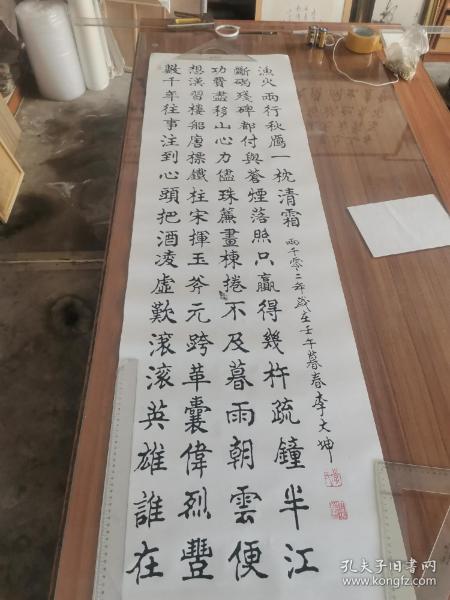 數千年往事注到心頭把酒凌虛歎滾滾英雄誰在
想漢習樓船唐標鐵柱宋揮玉斧元跨革囊偉烈豐
功費盡移山心力儘珠簾畫棟捲不及暮雨朝雲便
斷碣殘碑都付與蒼煙落照只贏得幾杵疏鐘半江
漁火兩行秋鴈一枕清霜
兩千零二年歲在壬午暮春李大坤
孔夫子旧书网
www.kongfz.com